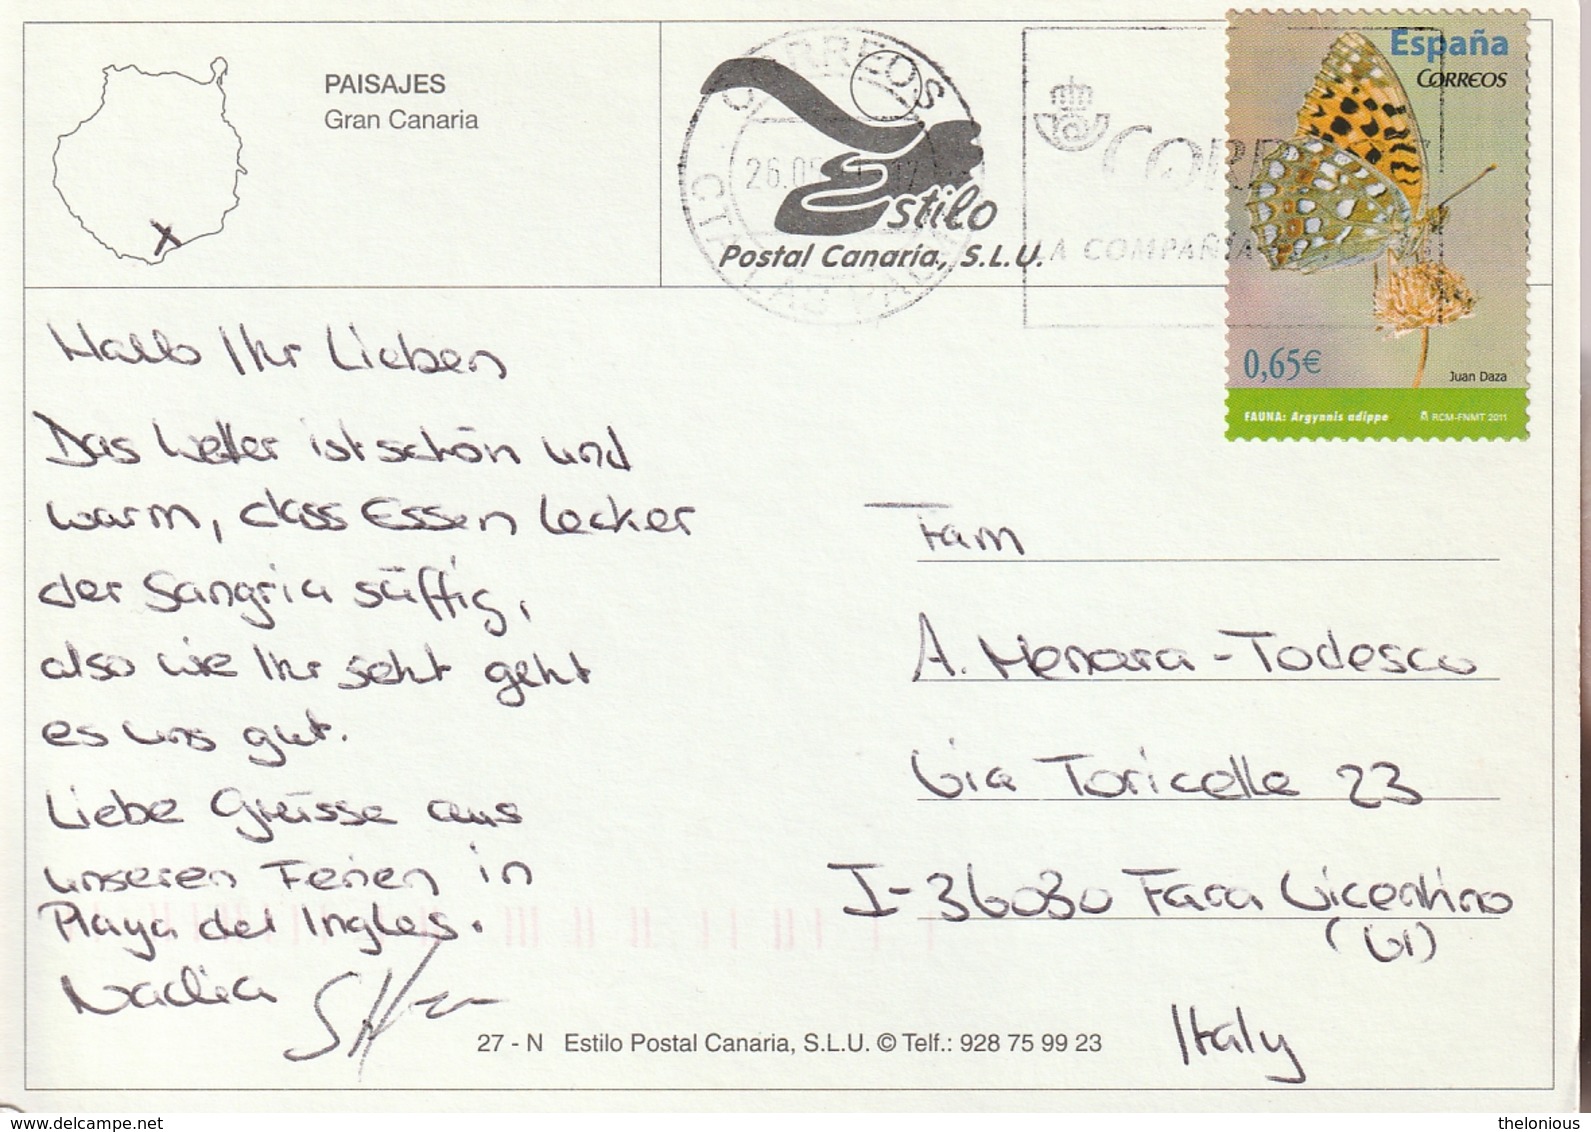 PAISAJES
Gran Canaria
CORREOS
Estilo
Postal Canaria, S.L.U.
LA COMPAÑIA
España
CORREOS
0,65€
Juan Daza
FAUNA: Argynnis adippe
RCM-FNMT 2011
Hallo Ihr Lieben
Das Wetter ist schön und
warm, dass Essen lecker
der Sangria süffig,
also wie Ihr seht geht
es uns gut.
Liebe Grüsse aus
unseren Ferien in
Playa del Ingles.
Nadia
Fam
A. Menara-Todesco
Via Toricelle 23
I-36030 Fara Vicentino
(VI)
Italy
27 - N Estilo Postal Canaria, S.L.U. © Telf.: 928 75 99 23
delcampe.net
thelonious